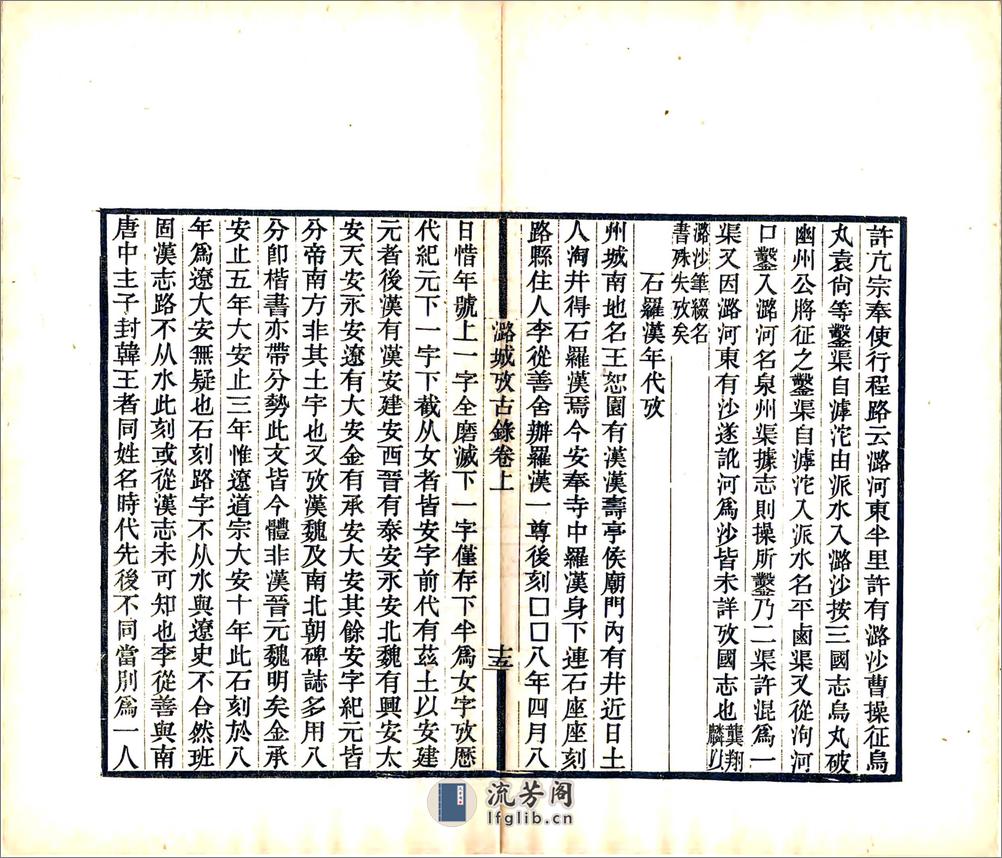 許亢宗奉使行程路云潞河東半里許有潞沙曹操征烏
丸袁尙等鑿渠自滹沱由派水入潞沙按三國志烏丸破
幽州公將征之鑿渠自滹沱入派水名平鹵渠又從泃河
口鑿入潞河名泉州渠據志則操所鑿乃二渠許混爲一
渠又因潞河東有沙遂訛河爲沙皆未詳攷國志也龔翔
麟以
潞沙筆綴名
書殊失攷矣
石羅漢年代攷
州城南地名王恕園有漢漢壽亭侯廟門內有井近日土
人淘井得石羅漢焉今安奉寺中羅漢身下連石座座刻
路縣住人李從善舍辦羅漢一尊後刻□□八年四月八
潞城攷古錄卷上
十五
日惜年號上一字全磨滅下一字僅存下半爲女字攷歷
代紀元下一字下截从女者皆安字前代有茲土以安建
元者後漢有漢安建安西晉有泰安永安北魏有興安太
安天安永安遼有大安金有承安大安其餘安字紀元皆
分帝南方非其土宇也又攷漢魏及南北朝碑誌多用八
分卽楷書亦帶分勢此文皆今體非漢晉元魏明矣金承
安止五年大安止三年惟遼道宗大安十年此石刻於八
年爲遼大安無疑也石刻路字不从水與遼史不合然班
固漢志路不从水此刻或從漢志未可知也李從善與南
唐中主子封韓王者同姓名時代先後不同當別爲一人
流芳阁
lfglib.cn